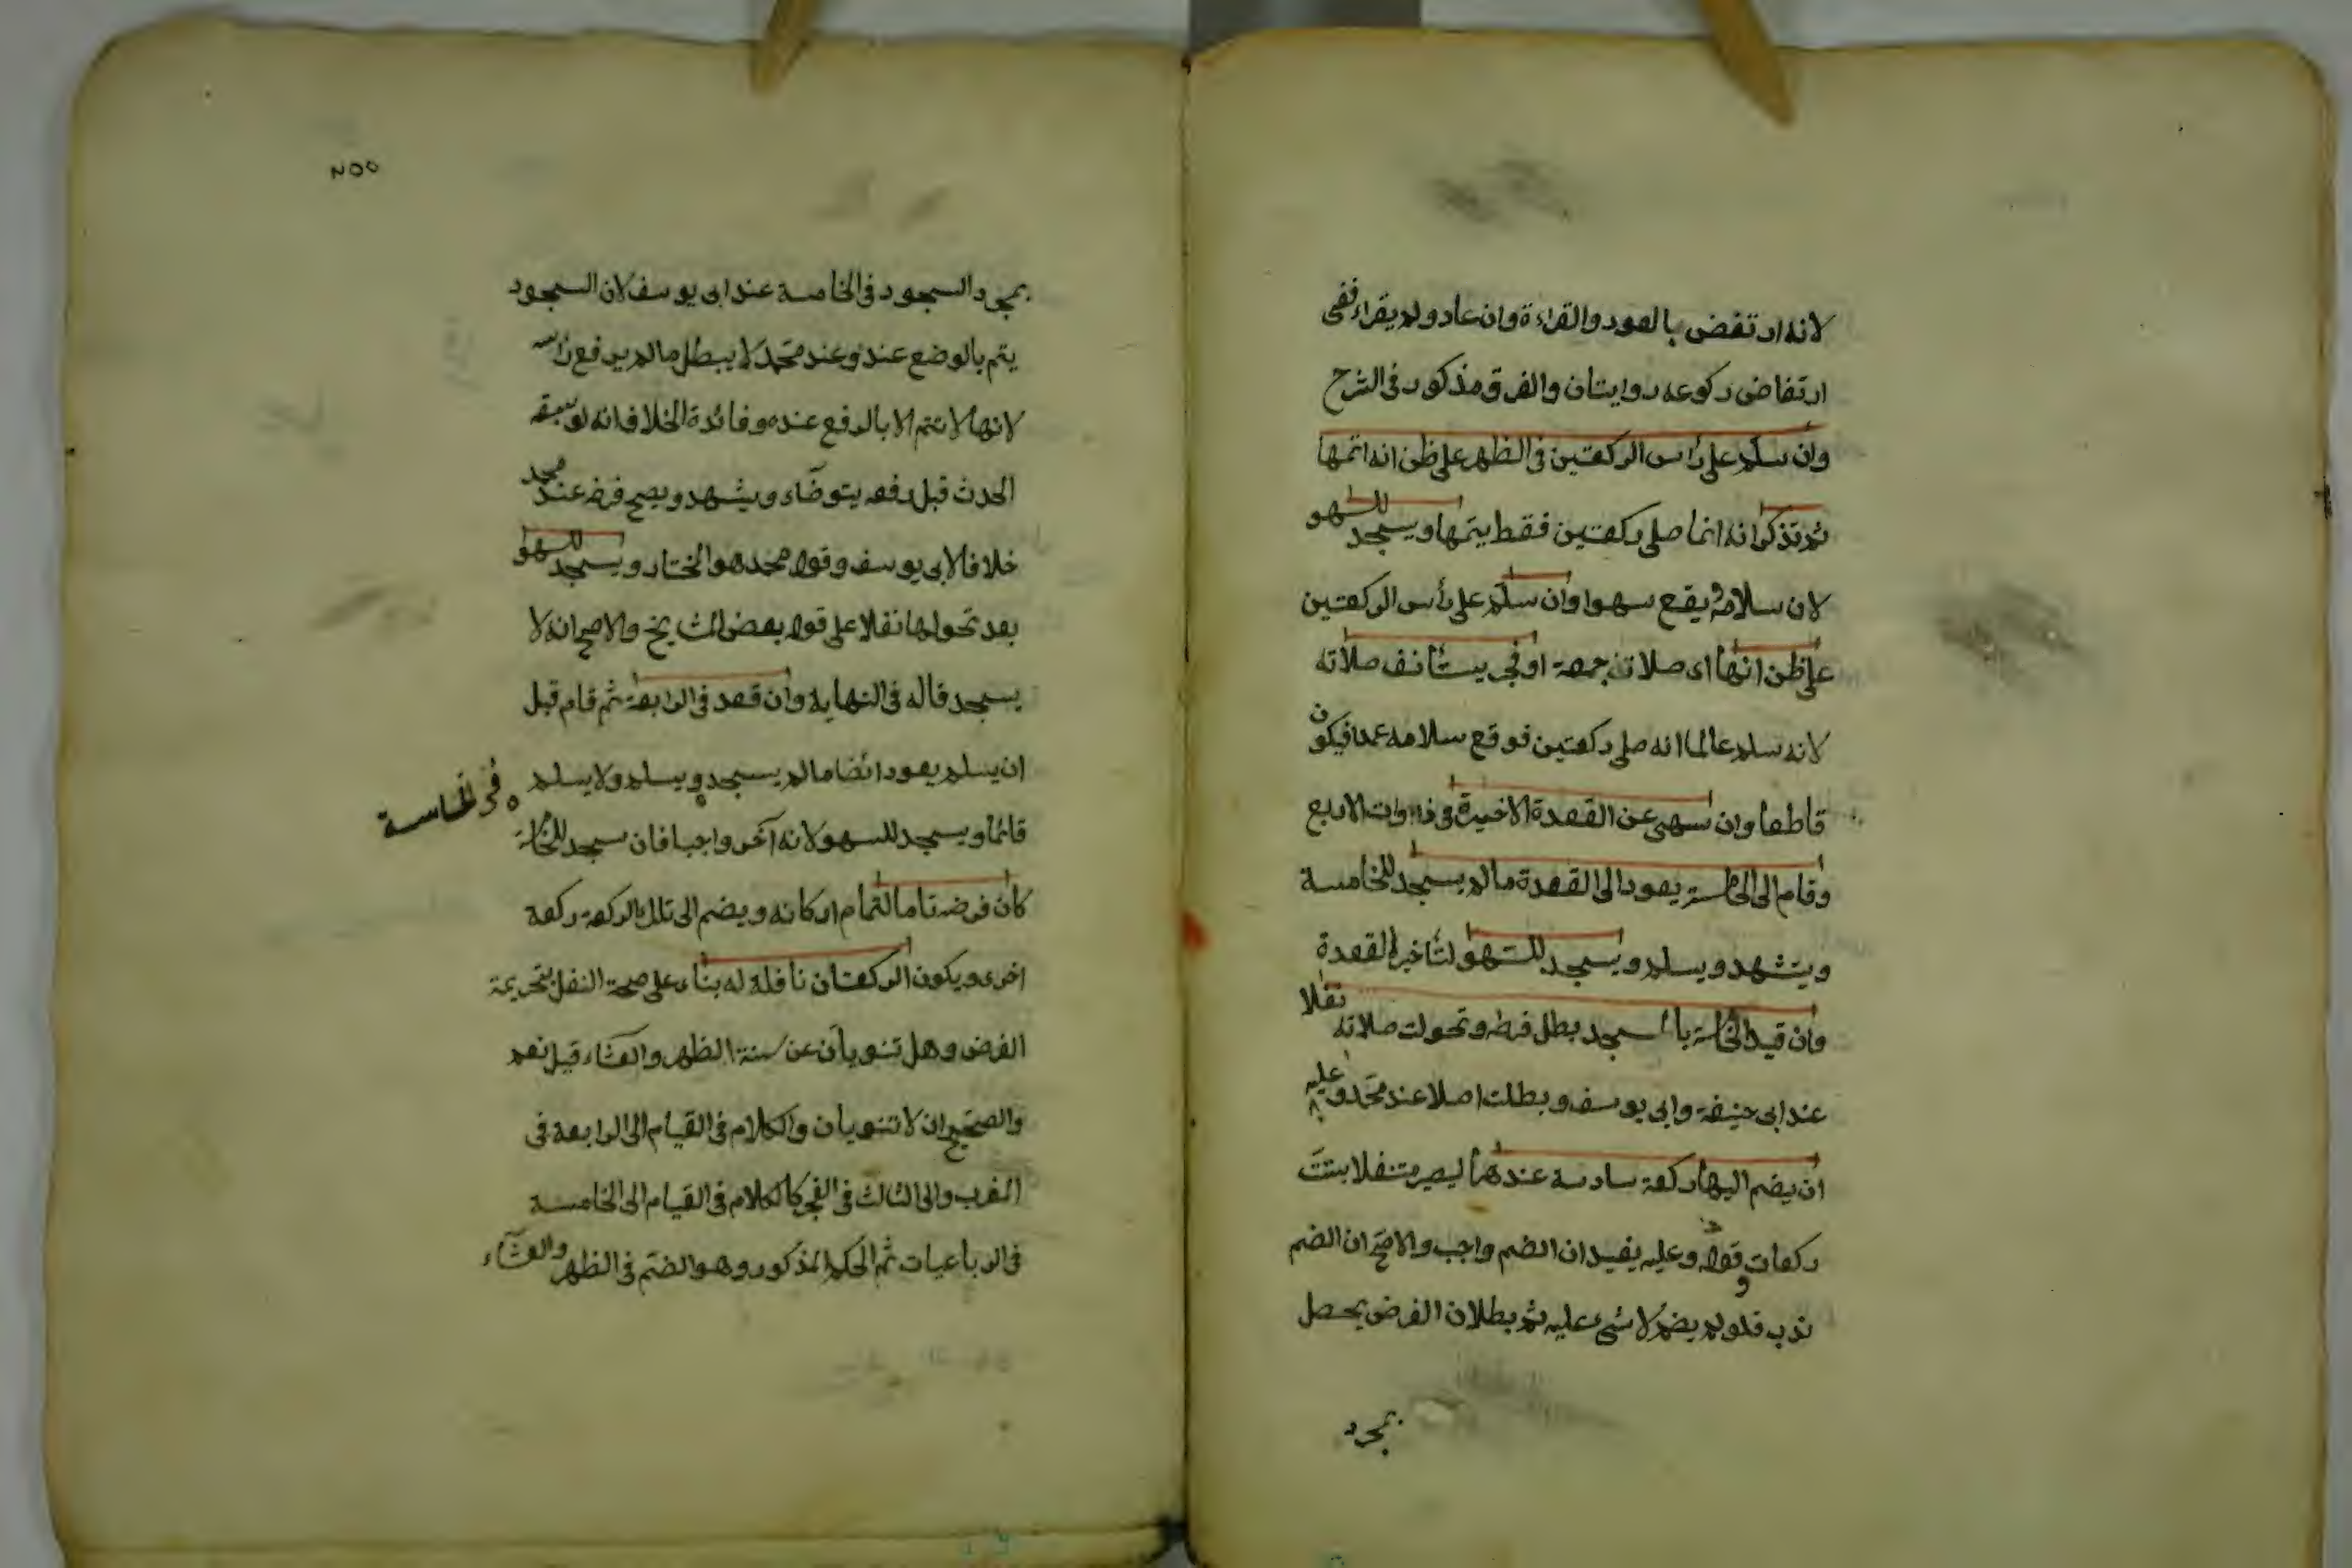 لانه ارتفض بالعود والقراءة وان عاد ولم يقراء ففى
ارتفاض ركوعه روايتان والفرق مذكور فى الشرح
وان سلم على رأس الركعتين فى الظهر على ظن انه اتمها
ثم تذكر انه انما صلى ركعتين فقط يتمها ويسجد للسهو
لان سلامه يقع سهوا وان سلم على رأس الركعتين
على ظن انها اى صلاته جمعة او فجر يستأنف صلاته
لانه سلم عالما انه صلى ركعتين فوقع سلامه عمدا فيكون
قاطعا وان سهى عن القعدة الاخيرة فى ذوات الاربع
وقام الى الخامسة يعود الى القعدة ما لم يسجد للخامسة
ويتشهد ويسلم ويسجد للسهو لتأخير القعدة
وان قيد الخامسة بالسجد بطل فرضه وتحولت صلاته نفلا
عند ابى حنيفة وابى يوسف وبطلت اصلا عند محمد وعليه
ان يضم اليها ركعة سادسة عندهما ليصير متنفلا بست
ركعات وقوله وعليه يفيد ان الضم واجب والاصح ان الضم
ندب فلو لم يضم لا شىء عليه ثم بطلان الفرض يحصل
بمجرد
٢٥٥
بمجرد السجود فى الخامسة عند ابى يوسف لان السجود
يتم بالوضع عنده وعند محمد لا يبطل ما لم يرفع رأسه
لانها لا تتم الا بالرفع عنده وفائدة الخلاف انه لو سبقه
الحدث قبل رفعه يتوضاء ويشهد ويصح فرضه عند محمد
خلافا لابى يوسف وقول محمد هو المختار ويسجد للسهو
بعد تحولها نفلا على قول بعض المشايخ والاصح انه لا
يسجد قاله فى النهاية وان قعد فى الرابعة ثم قام قبل
ان يسلم يعود ائضا ما لم يسجد ويسلم ولا يسلم
فى الخامسة
قائما ويسجد للسهو لانه آخر واجبا فان سجد للخامسة
كان فرضه تاما لتمام اركانه ويضم الى تلك الركعة ركعة
اخرى ويكون الركعتان نافلة له بناء على صحة النفل بتحريمة
الفرض وهل تنويان عن سنة الظهر والعشاء قيل نعم
والصحيح ان لا تنويان والكلام فى القيام الى الرابعة فى
المغرب والى الثالث فى الفجر كالكلام فى القيام الى الخامسة
فى الرباعيات ثم الحكم المذكور وهو الضم فى الظهر والعشاء